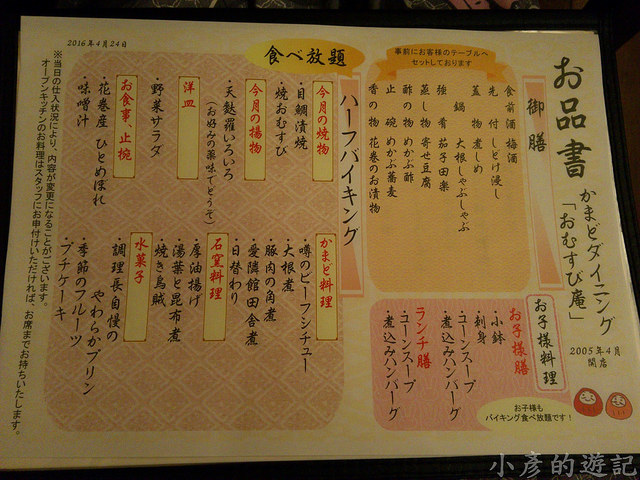 お品書
かまどダイニング
「おむすび庵」
2005年4月
開店
事前にお客様のテーブルへ
セットしております
御膳
食前酒 梅酒
先付 しどけ浸し
蓋物 煮しめ
鍋 大根しゃぶしゃぶ
強肴 茄子田楽
蒸し物 寄せ豆腐
酢の物 めかぶ酢
止椀 めかぶ蕎麦
香の物 花巻のお漬物
お子様料理
お子様膳
・小鉢
・刺身
・コーンスープ
・煮込みハンバーグ
ランチ膳
・コーンスープ
・煮込みハンバーグ
お子様も
バイキング食べ放題です！
食べ放題
ハーフバイキング
今月の焼物
・目鯛漬焼
・焼おむすび
今月の揚物
・天麩羅いろいろ
（お好みの薬味でどうぞ）
洋皿
・野菜サラダ
お食事、止椀
・花巻産 ひとめぼれ
・味噌汁
かまど料理
・噂のビーフシチュー
・大根煮
・豚肉の角煮
・愛隣館田舎煮
・日替わり
石窯料理
・厚油揚げ
・湯葉と昆布煮
・焼き烏賊
水菓子
・調理長自慢の
やわらかプリン
・季節のフルーツ
・プチケーキ
※当日の仕入状況により、内容が変更になることがございます。
オープンキッチンのお料理はスタッフにお申付けいただければ、お席までお持ちいたします。
2016年4月24日
小彥的遊記